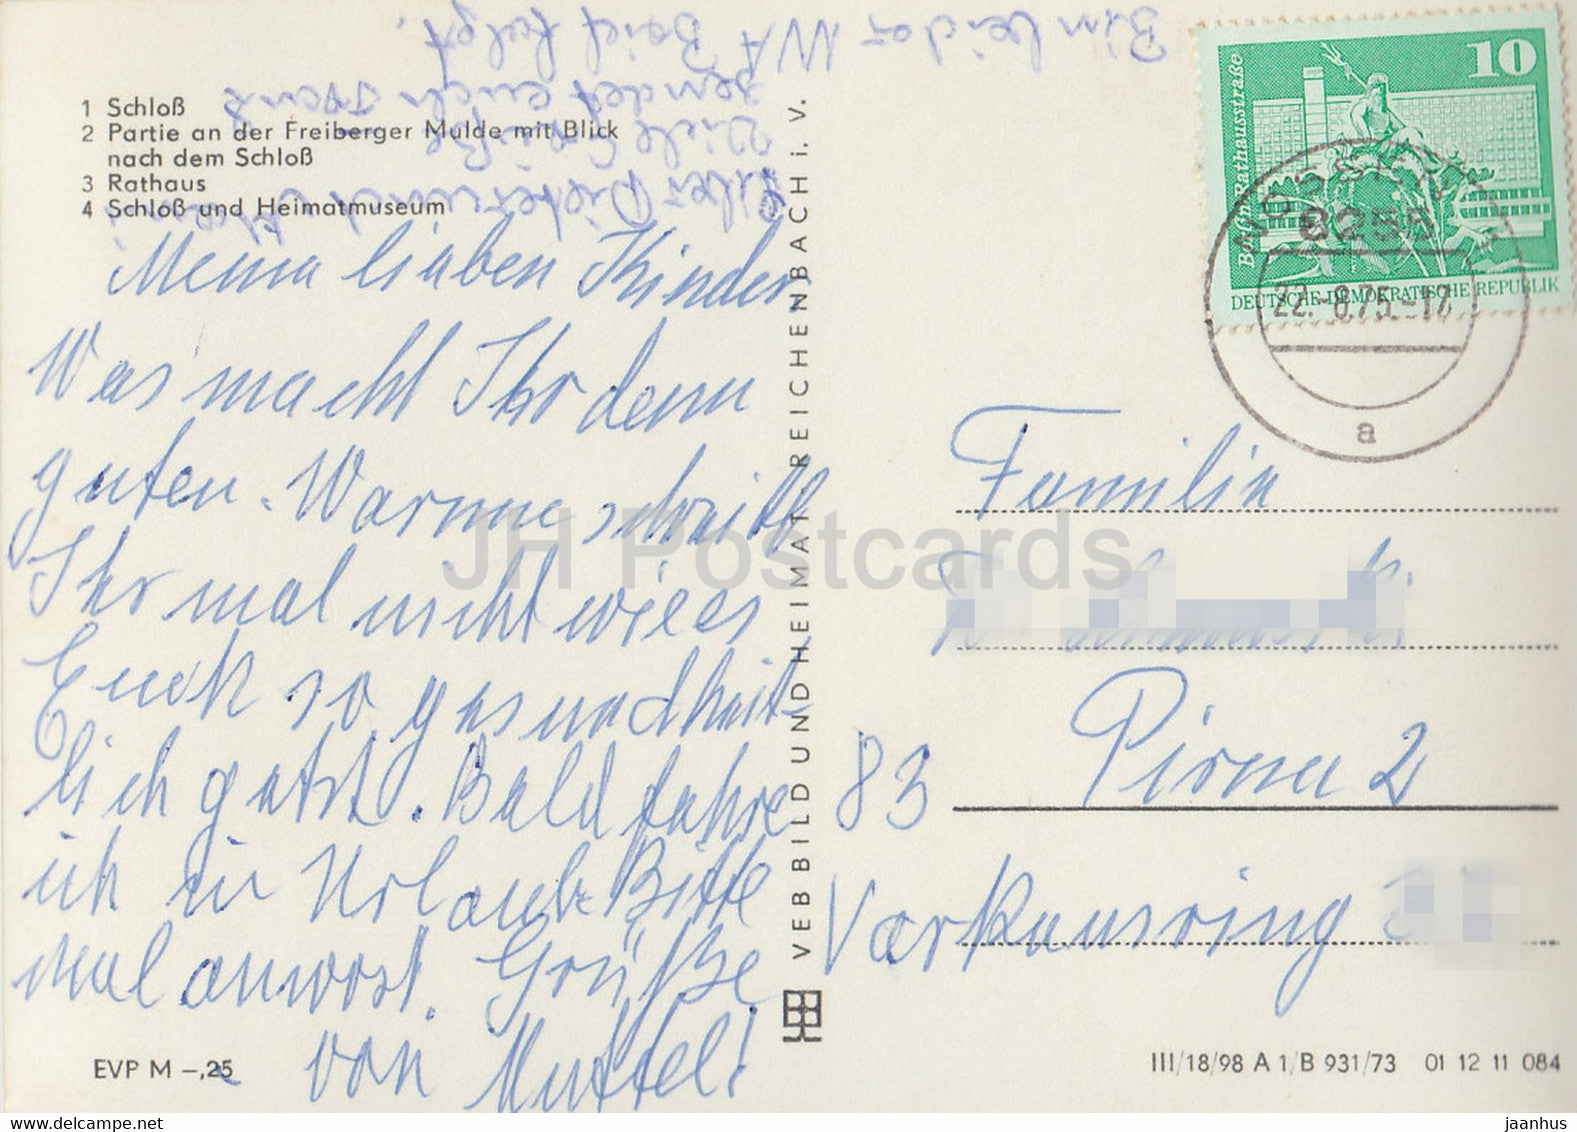 Bin leider NVA Brief folgt.
sendet euch Franz
Viele Grüße
1 Schloß
2 Partie an der Freiberger Mulde mit Blick
nach dem Schloß
3 Rathaus
4 Schloß und Heimatmuseum
Meine lieben Kinder,
Was macht Ihr denn
guten. Warum schreibt
Ihr mal nicht wie es
Euch so gesundheit-
lich geht. Bald fahre
ich in Urlaub. Bitte
mal anwort. Grüße
von Muttel!
EVP M –,25
VEB BILD UND HEIMAT REICHENBACH i. V.
10
Berlin, Rathausstraße
DEUTSCHE DEMOKRATISCHE REPUBLIK
NOSSEN 1
8255
22.-8.75.-17
a
Familie
Pirna 2
83
Varkausring
III/18/98 A 1/B 931/73 01 12 11 084
JH Postcards
www.delcampe.net
jaanhus